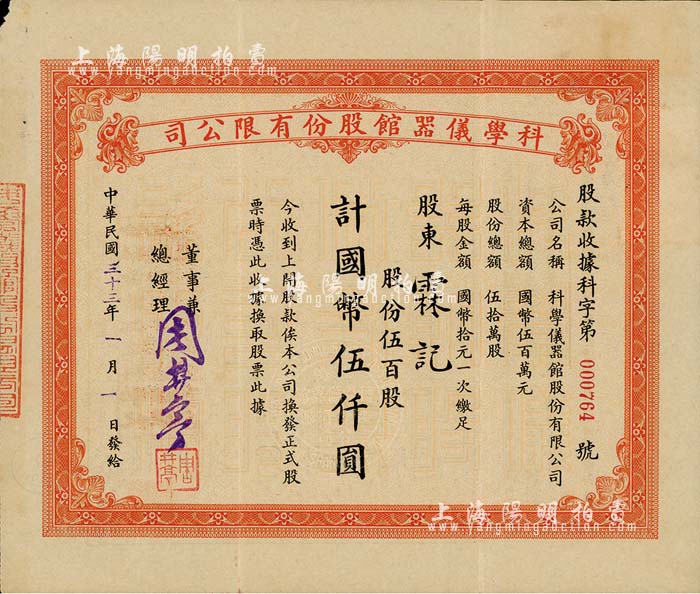 上海陽明拍賣
www.yangmingauction.com
科學儀器館股份有限公司
股款收據科字第 000764 號
公司名稱 科學儀器館股份有限公司
資本總額 國幣伍百萬元
股份總額 伍拾萬股
每股金額 國幣拾元一次繳足
股東 霖記
股份伍百股
計國幣伍仟圓
今收到上開股款俟本公司換發正式股
票時憑此收據換取股票此據
董事兼
總經理
中華民國三十三年一月一日發給
上海陽明拍賣
www.yangmingauction.com
上海陽明拍賣
www.yangmingauction.com